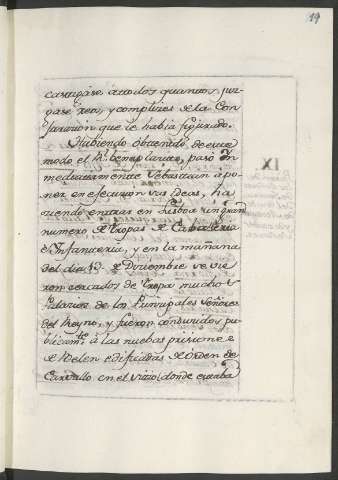 19
castigase a todos quantos juz-
gase reos, y complizes de la Con-
juracion que se habia figurado.
Habiendo obtenido de este
modo el Rl. beneplacito, pasó in-
mediatamente Sebastian a po-
ner en execucion sus Ideas, ha-
ciendo entrar en Lisboa un gran
numero de Tropas de Caballeria
e Infanteria, y en la mañana
del dia 13. de Diziembre se vie-
ron cercados de Tropa muchos
Palacios de los Principales Señores
del Reyno, y fueron conducidos pu-
blicamte. á las nuebas prisiones
de Belen edificadas de orden de
Carvallo en el sitio donde estaba
IX